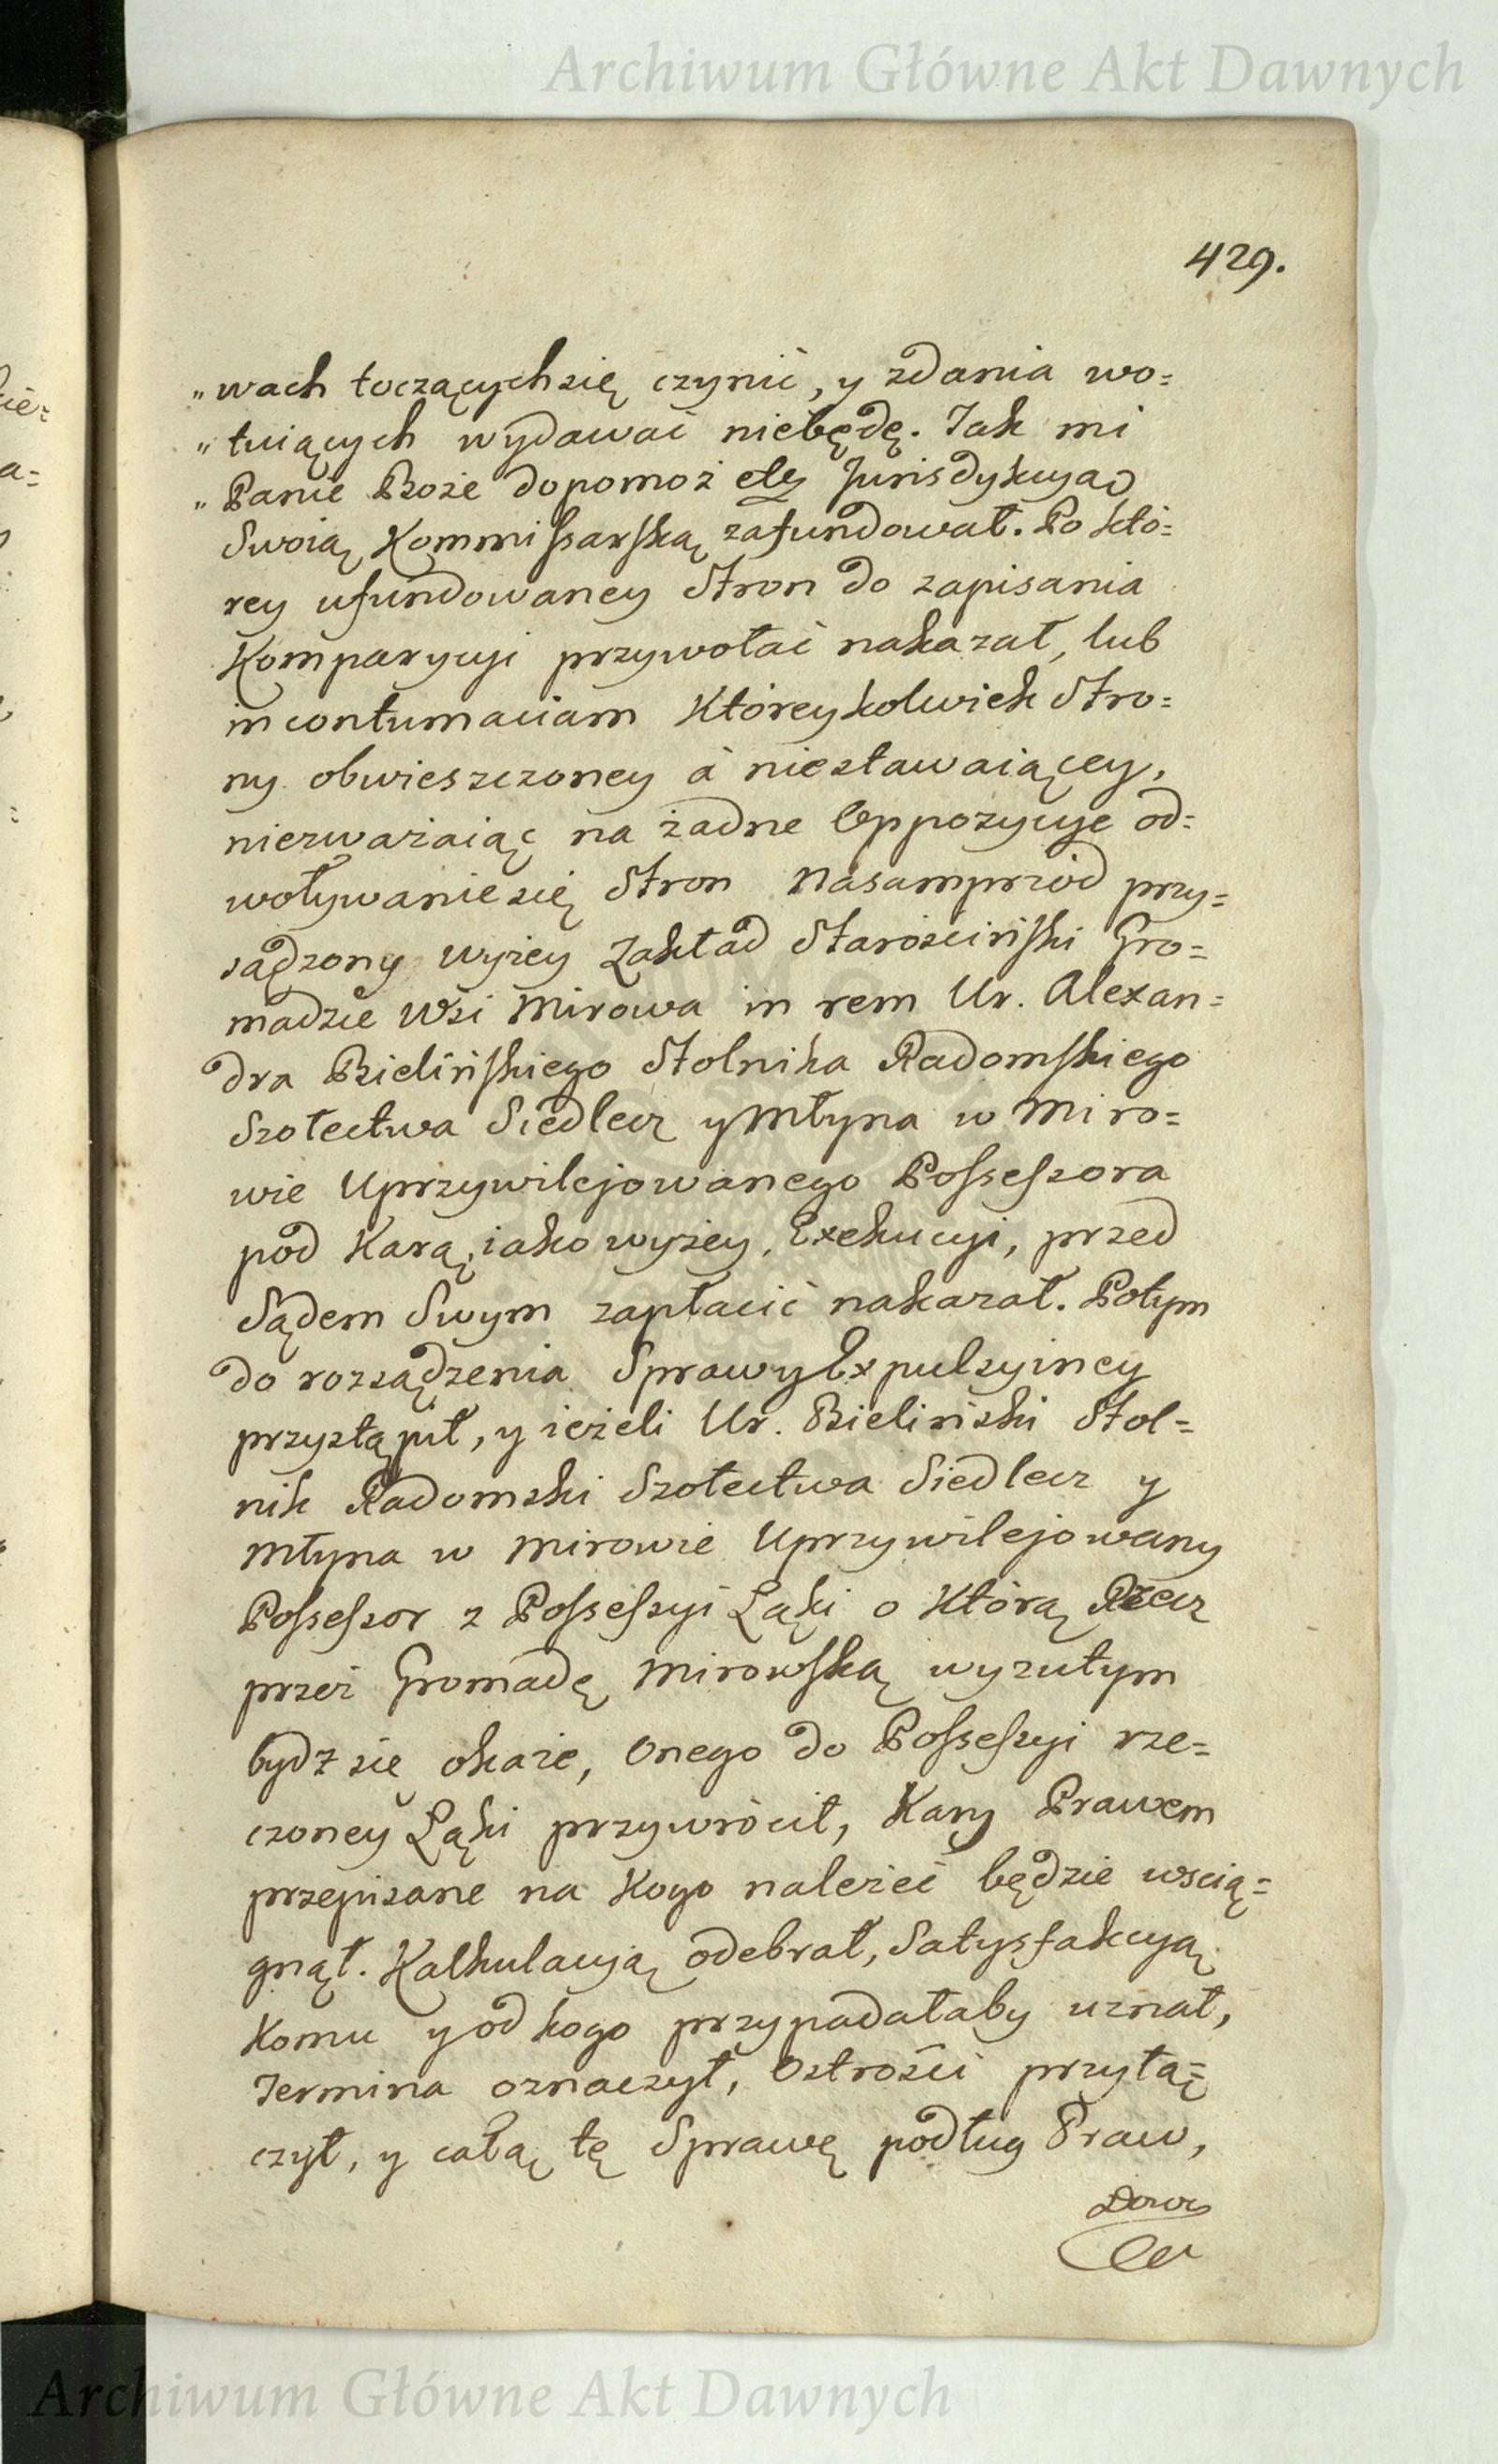 Archiwum Główne Akt Dawnych
429.
„wach toczących się czynić, y zdania wo=
„tuiących wydawać niebędę. Jak mi
„Panie Boże dopomoż etc Jurisdykcyą
Swoią Kommissarską zafundował. Po któ=
rey ufundowaney Stron do zapisania
Komparycyi przywołać nakazał, lub
in contumaciam Któreykolwiek Stro=
ny obwieszczoney á niestawaiącey,
niezważaiąc na żadne Oppozycyje od=
woływanie się Stron nasamprzód przy=
sądzony wyżey Zakład Starościński Gro=
madzie Wsi Mirowa in rem Ur. Alexan=
dra Bielińskiego Stolnika Radomskiego
Szołectwa Siedlecz y Młyna w Miro=
wie Uprzywilejowanego Possessora
pod Karą, iako wyżey, Exekucyi, przed
Sądem Swym zapłacić nakazał. Potym
do rozsądzenia Sprawy Expulsyiney
przystąpił, y ieżeli Ur. Bieliński Stol=
nik Radomski Szołectwa Siedlecz y
Młyna w Mirowie Uprzywilejowany
Possessor z Possessyi Łąki o Którą Rzecz
przez Gromadę Mirowską wyzutym
bydz się okaże, Onego do Possessyi rze=
czoney Łąki przywrócił, Kary Prawem
przepisane na Kogo należeć będzie wscią=
gnął. Kalkulacyą odebrał, Satysfakcyą
Komu y od kogo przypadałaby uznał,
Termina oznaczył, Ostrości przyłą=
czył, y całą tę Sprawę podług Praw,
Archiwum Główne Akt Dawnych